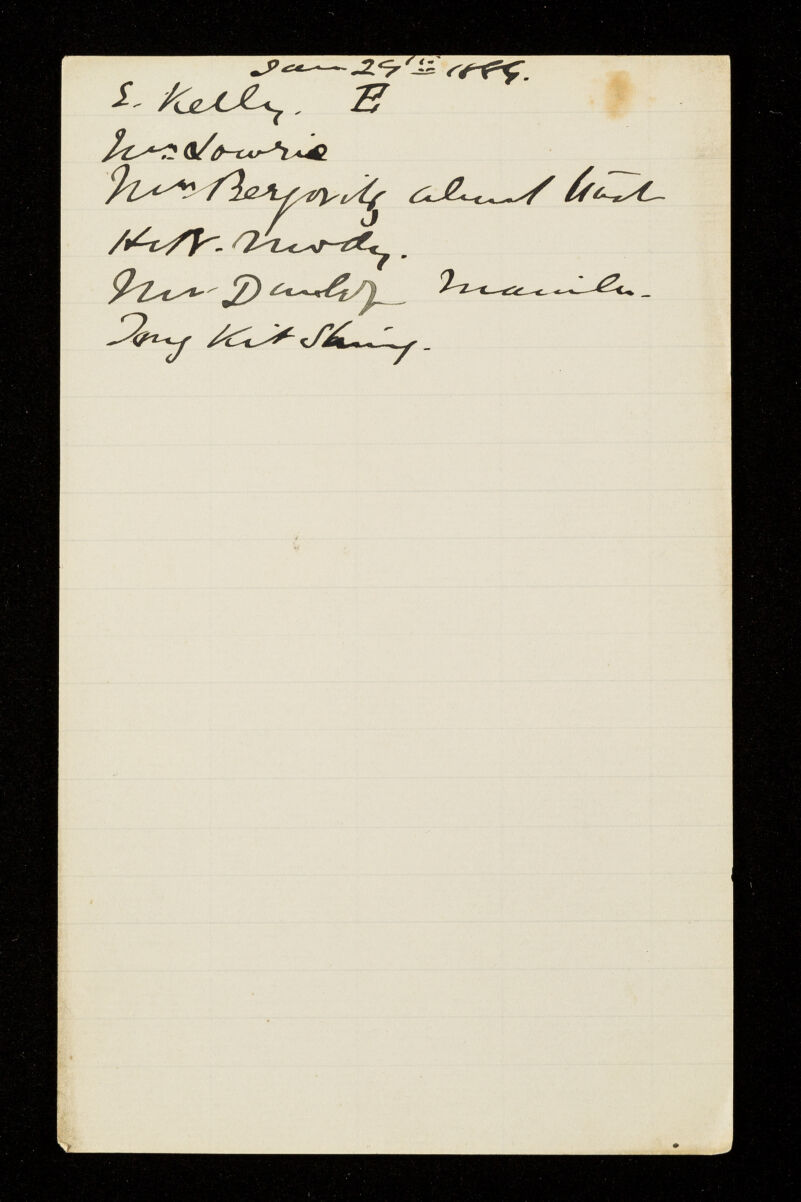 Jan 29th 1889.
E. Kelly. E
Mrs Lowrie
Mrs Berjovitz about
H. N. Mody.
Mr Dunlop Manila.
Tong Kit Shing.